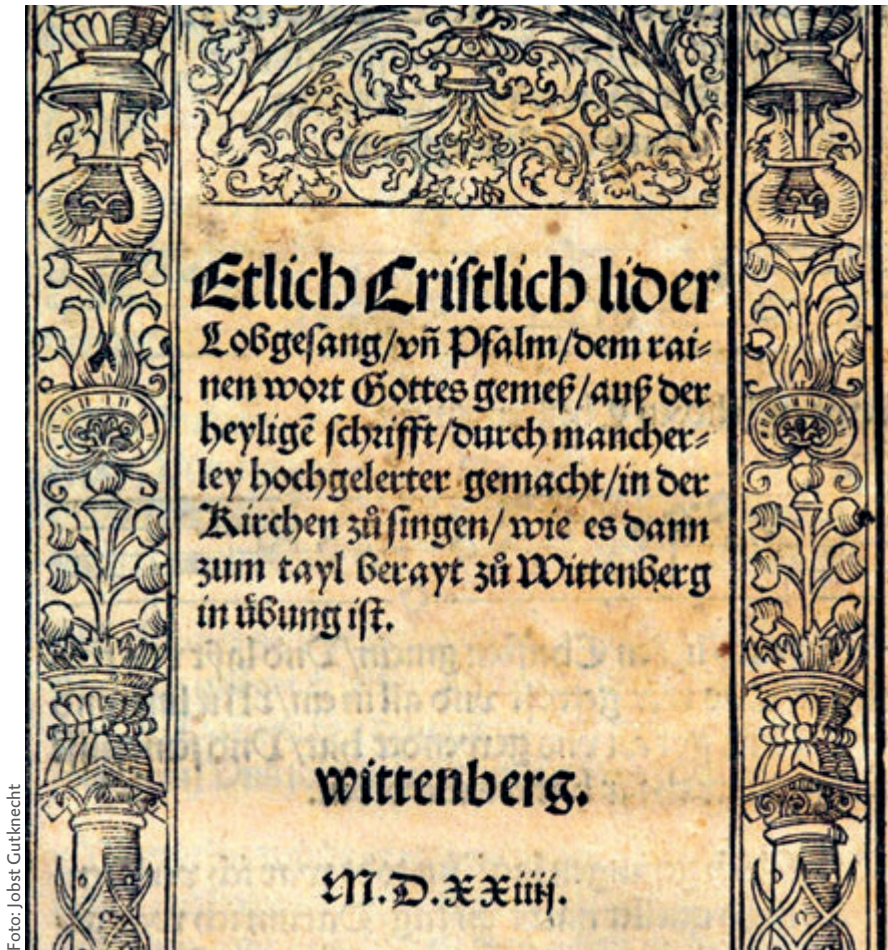 Etlich Cristlich lider
Lobgesang/vñ Psalm/dem rai⸗
nen wort Gottes gemeß/auß der
heyligē schrifft/durch mancher⸗
ley hochgelerter gemacht/in der
Kirchen zů singen/ wie es dann
zum tayl berayt zů Wittenberg
in übung ist.
wittenberg.
M.D.XXiiij.
Foto: Jobst Gutknecht